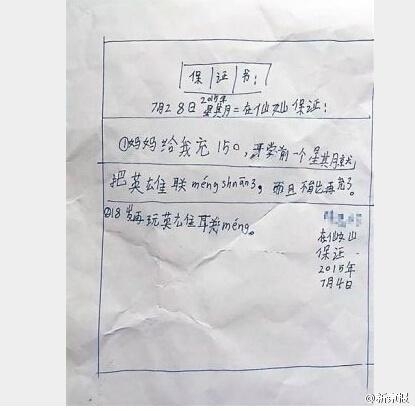 保证书：
2015年
7月28日星其月二在仙女山保证：
①妈妈给我充150，开学前一个星其月就
把英雄联méng shān3。而且不能再充了。
②18岁再玩英雄联méng。
在仙女山
保证
2015年
7月4日
@新京报